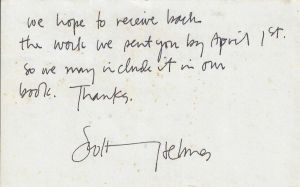 we hope to receive back
the work we sent you by April 1st.
so we may include it in our
book. Thanks.
Scott Helmes